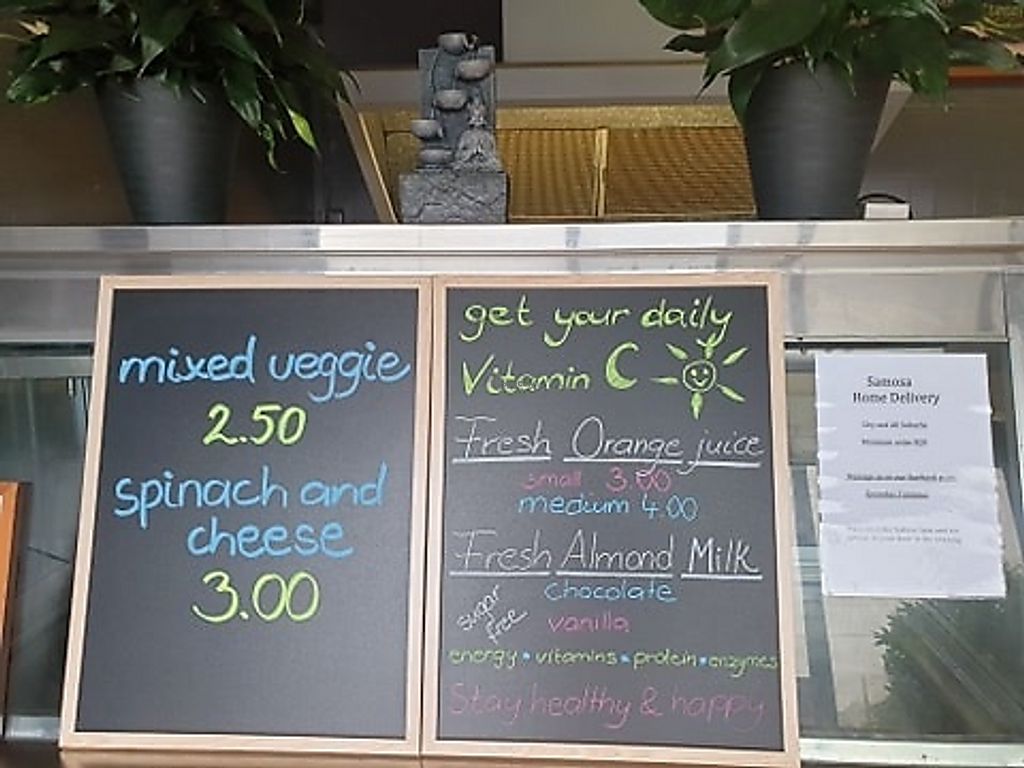 mixed veggie
2.50
spinach and
cheese
3.00
get your daily
Vitamin C
Fresh Orange juice
small 3.00
medium 4.00
Fresh Almond Milk
chocolate
sugar
free
vanilla
energy • vitamins • protein • enzymes
Stay healthy & happy
Samosa
Home Delivery